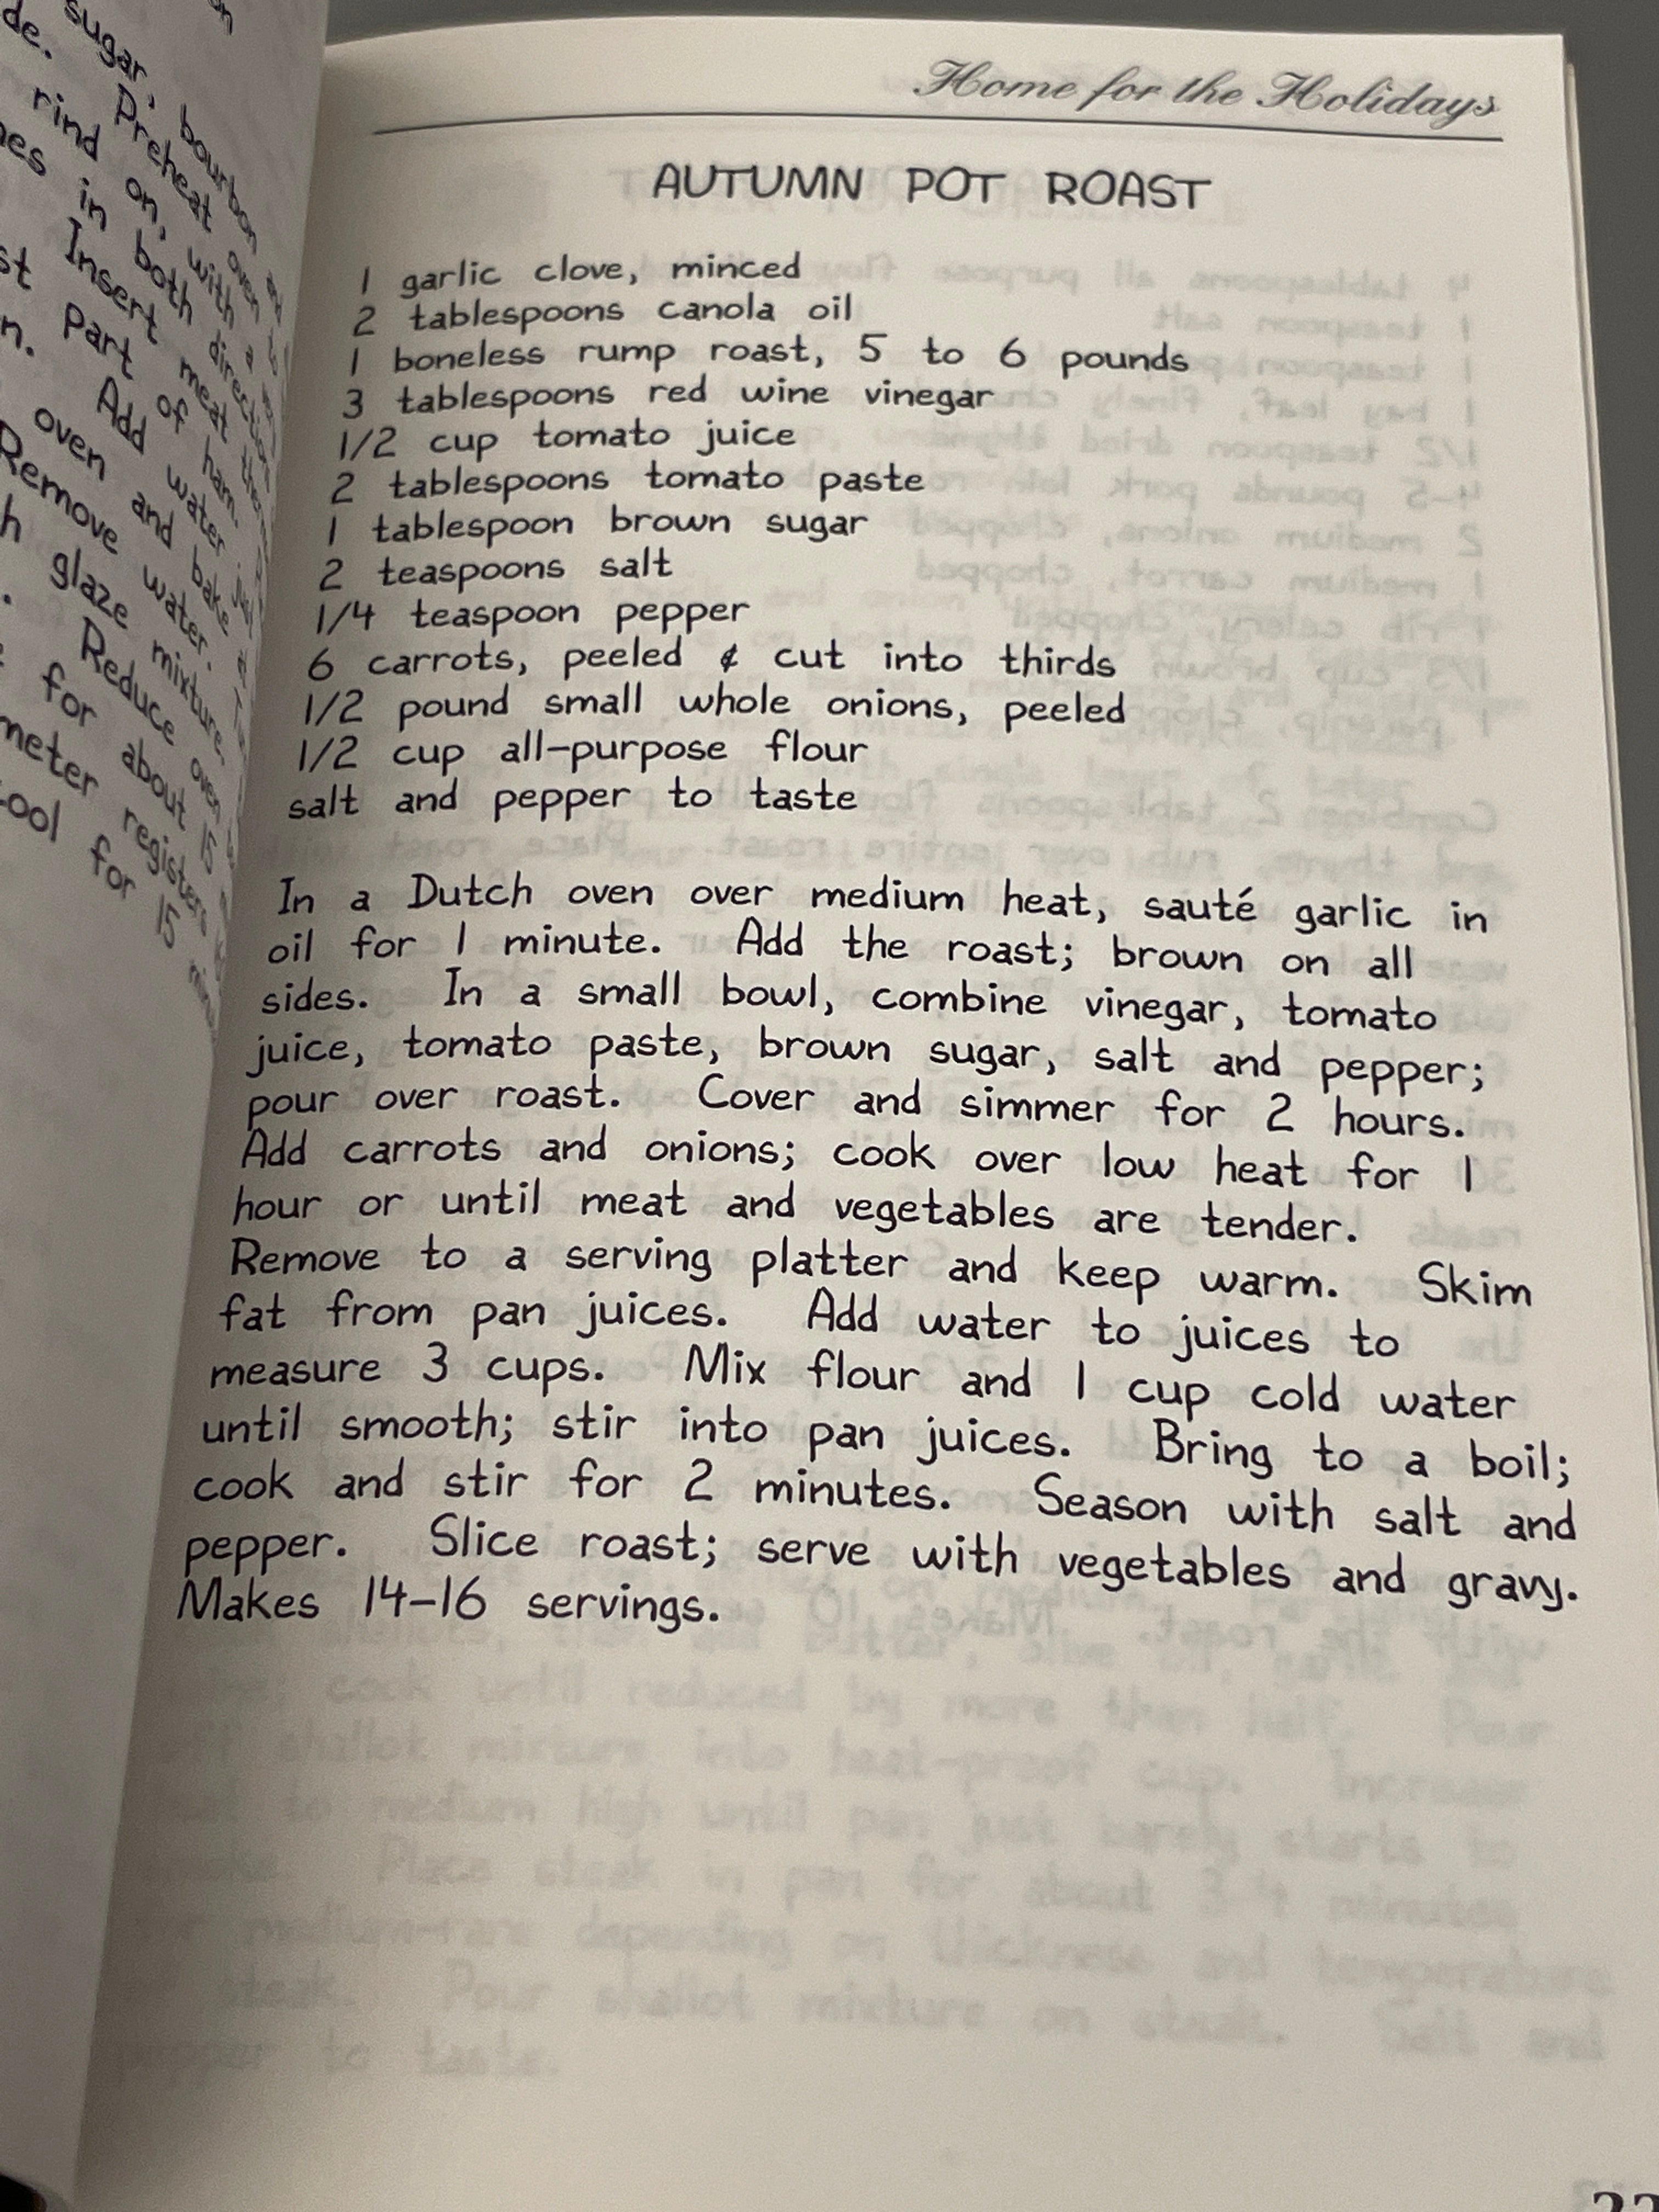 sugar, bourbon
de. Preheat oven
rind on, with a
in both directions
Insert meat
Part of ham.
n. Add water
oven and bake
Remove water.
glaze mixture.
Reduce oven
for about 15
meter registers
cool for 15
Home for the Holidays
AUTUMN POT ROAST
1 garlic clove, minced
2 tablespoons canola oil
1 boneless rump roast, 5 to 6 pounds
3 tablespoons red wine vinegar
1/2 cup tomato juice
2 tablespoons tomato paste
1 tablespoon brown sugar
2 teaspoons salt
1/4 teaspoon pepper
6 carrots, peeled & cut into thirds
1/2 pound small whole onions, peeled
1/2 cup all-purpose flour
salt and pepper to taste
In a Dutch oven over medium heat, sauté garlic in
oil for 1 minute. Add the roast; brown on all
sides. In a small bowl, combine vinegar, tomato
juice, tomato paste, brown sugar, salt and pepper;
pour over roast. Cover and simmer for 2 hours.
Add carrots and onions; cook over low heat for 1
hour or until meat and vegetables are tender.
Remove to a serving platter and keep warm. Skim
fat from pan juices. Add water to juices to
measure 3 cups. Mix flour and 1 cup cold water
until smooth; stir into pan juices. Bring to a boil;
cook and stir for 2 minutes. Season with salt and
pepper. Slice roast; serve with vegetables and gravy.
Makes 14-16 servings.